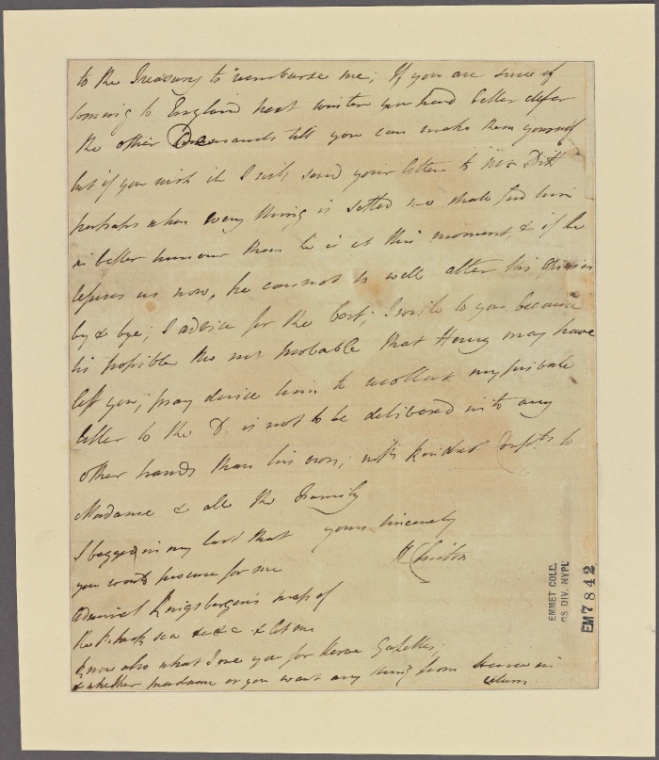 to the Treasury to reimburse me; If you are sure of
coming to England next winter you had better defer
the other Demands till you can make them yourself
but if you wish it I will send your letter to Mr Ditt
perhaps when every thing is settled we shall find him
in better humour than he is at this moment, & if he
refuses us now, he cannot so well alter his Opinion
by & bye; I advise for the best; I write to you because
tis possible tho not probable that Henry may have
left you; pray desire him to recollect my private
letter to the D. is not to be delivered into any
other hands than his own; with kindest Respts to
Madame & all the Family
yours sincerely
H Clinton
I begged in my last that
you would procure for me
Admiral Knigsbergen's map of
the Black sea &c & let me
know also what I owe you for Gazettes,
& whether Madame or you want any thing from hence in
return.
EMMET COLL.
SS DIV. NYPL
EM7842